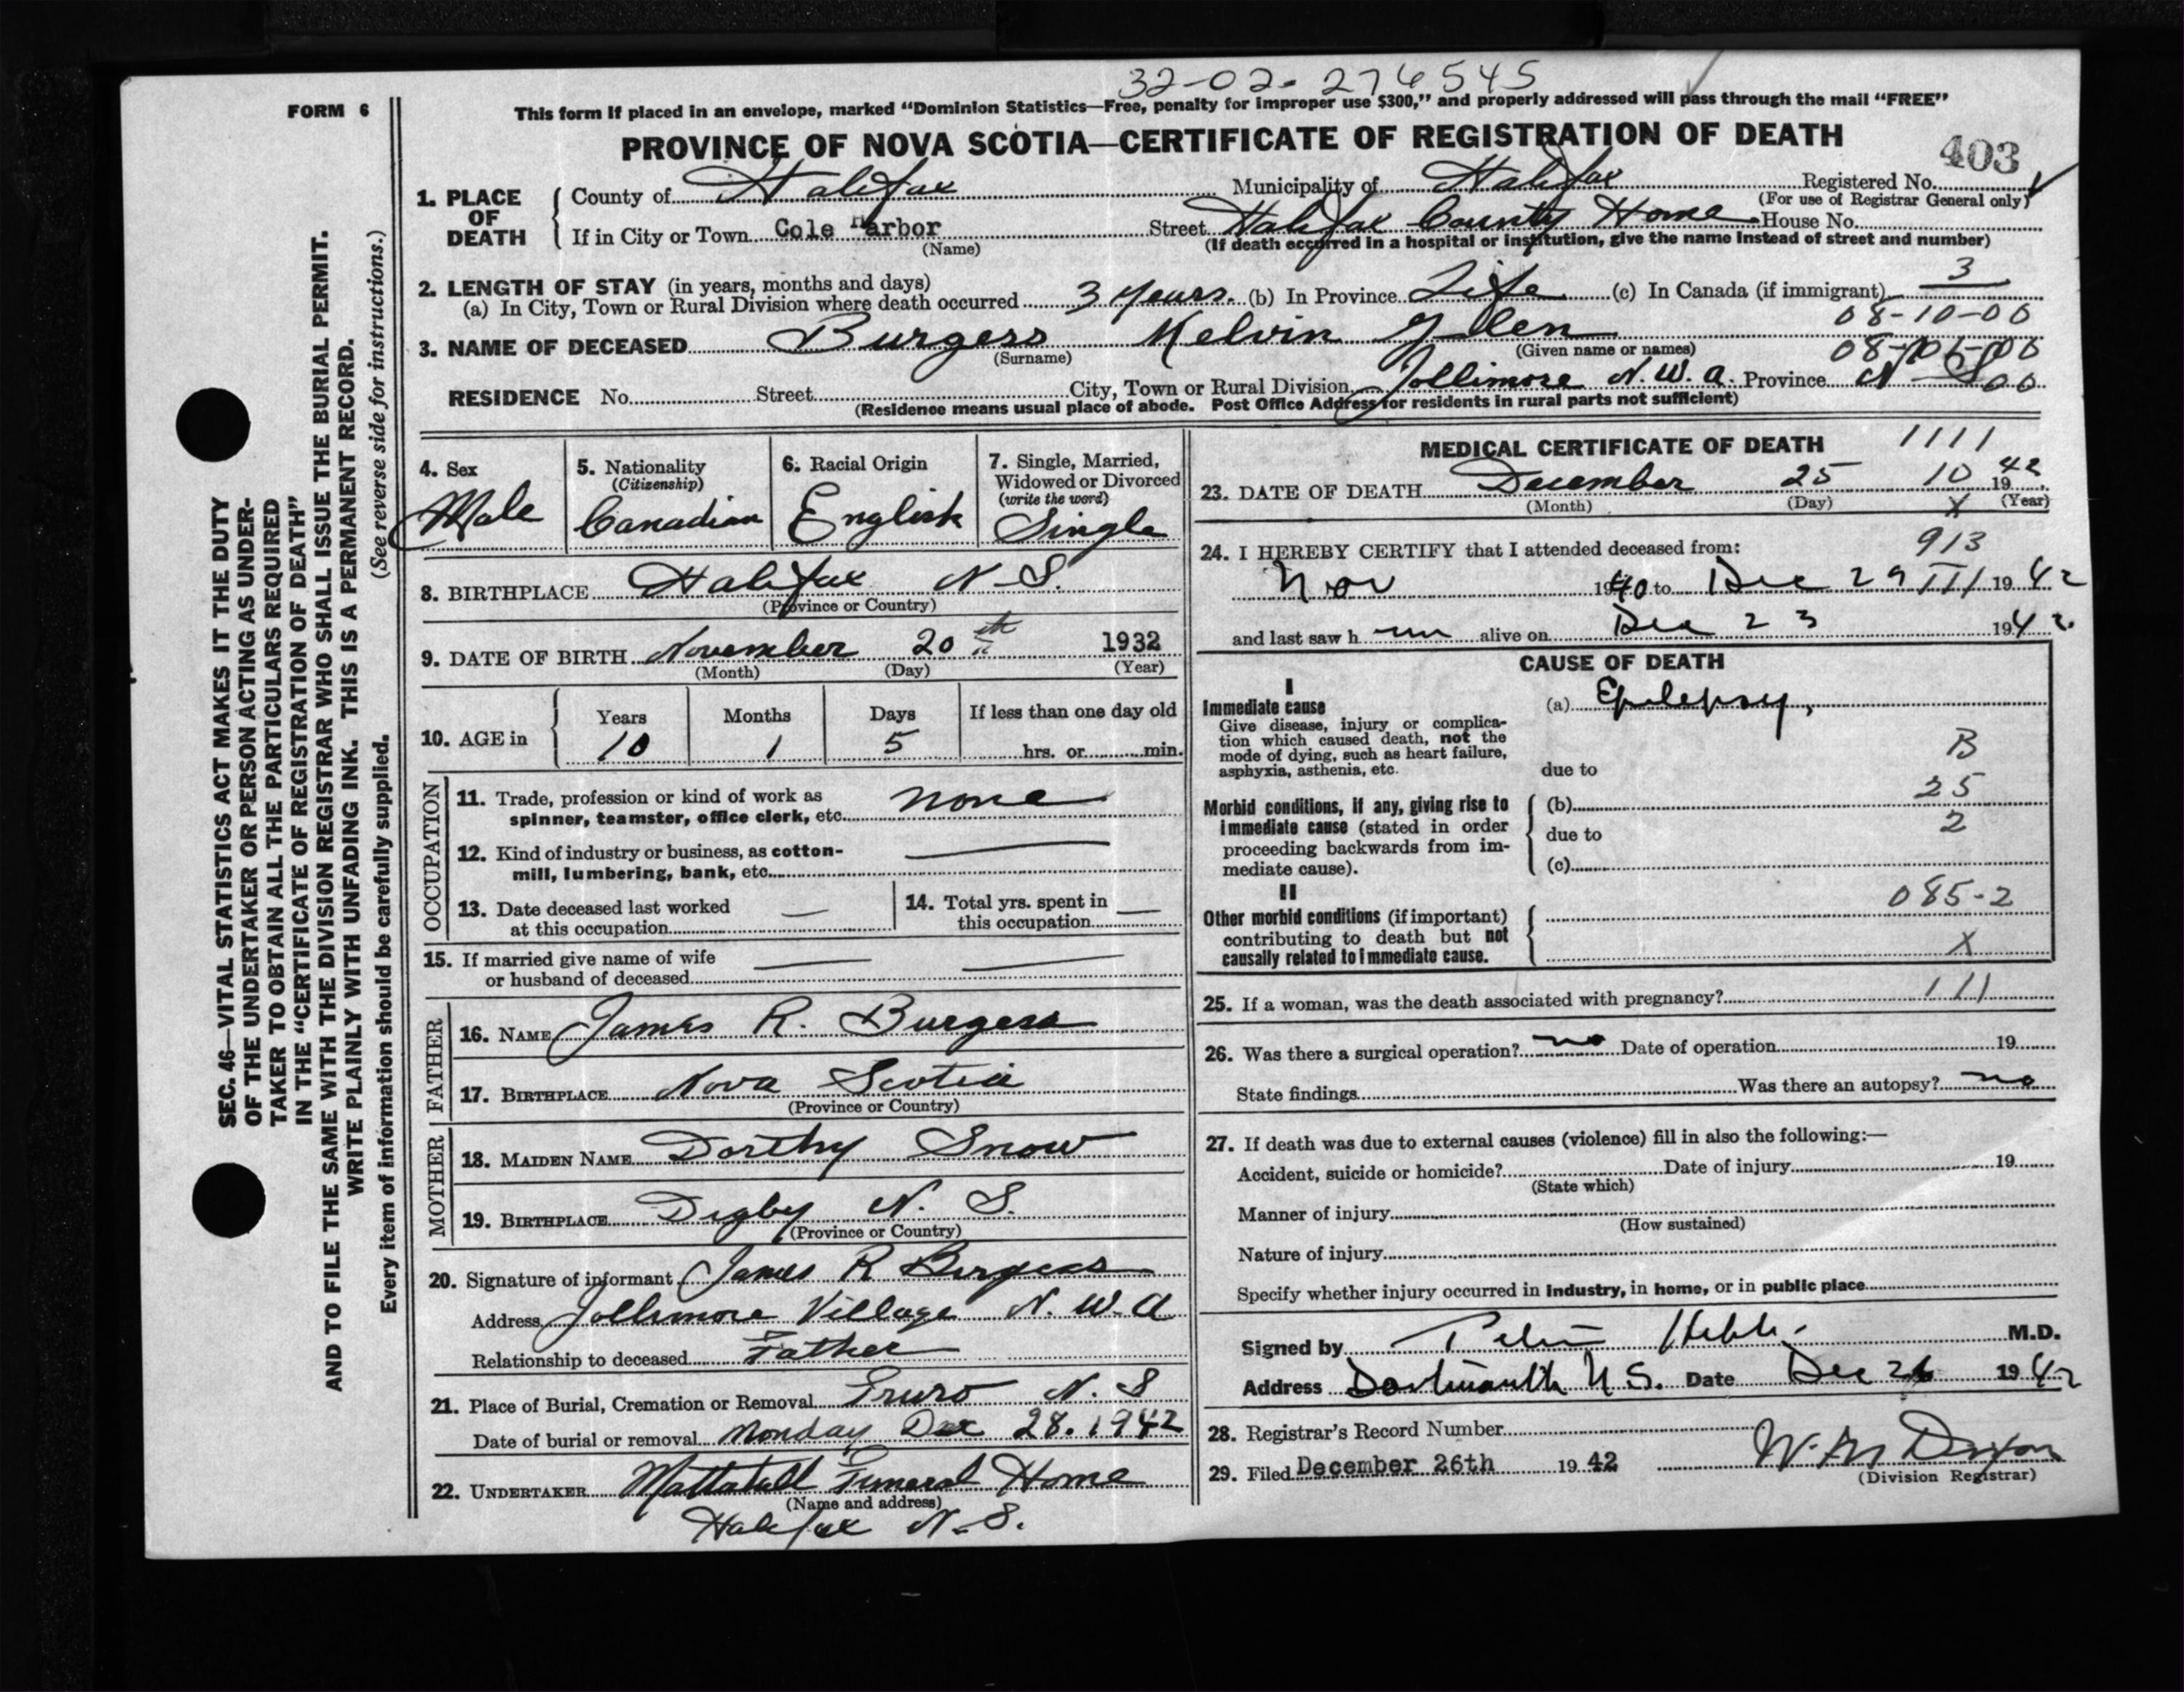 32-02-276545
FORM 6
This form if placed in an envelope, marked "Dominion Statistics—Free, penalty for improper use $300," and properly addressed will pass through the mail "FREE"
PROVINCE OF NOVA SCOTIA—CERTIFICATE OF REGISTRATION OF DEATH
403
1. PLACE OF DEATH County of Halifax Municipality of Halifax Registered No.
(For use of Registrar General only)
If in City or Town Cole Harbor Street Halifax County Home House No.
(Name) (If death occurred in a hospital or institution, give the name instead of street and number)
2. LENGTH OF STAY (in years, months and days)
(a) In City, Town or Rural Division where death occurred 3 years. (b) In Province Life (c) In Canada (if immigrant) 3
08-10-00
3. NAME OF DECEASED Burgess Kelvin Glen
(Surname) (Given name or names)
RESIDENCE No. Street City, Town or Rural Division Jollimore N.W.A. Province N-S
(Residence means usual place of abode. Post Office Address for residents in rural parts not sufficient)
4. Sex Male
5. Nationality (Citizenship) Canadian
6. Racial Origin English
7. Single, Married, Widowed or Divorced (write the word) Single
8. BIRTHPLACE Halifax N-S.
(Province or Country)
9. DATE OF BIRTH November 20th 1932
(Month) (Day) (Year)
10. AGE in Years 10 Months 1 Days 5 If less than one day old hrs. or min.
OCCUPATION
11. Trade, profession or kind of work as spinner, teamster, office clerk, etc. none
12. Kind of industry or business, as cotton-mill, lumbering, bank, etc. —
13. Date deceased last worked at this occupation —
14. Total yrs. spent in this occupation —
15. If married give name of wife or husband of deceased — —
FATHER
16. NAME James R. Burgess
17. BIRTHPLACE Nova Scotia
(Province or Country)
MOTHER
18. MAIDEN NAME Dorthy Snow
19. BIRTHPLACE Digby N. S.
(Province or Country)
20. Signature of informant James R Burgess
Address Jollimore Village N. W. A
Relationship to deceased Father
21. Place of Burial, Cremation or Removal Truro N. S
Date of burial or removal Monday Dec 28. 1942
22. UNDERTAKER Mattatall Funeral Home
(Name and address)
Halifax N-S.
MEDICAL CERTIFICATE OF DEATH 1111
23. DATE OF DEATH December 25 10 1942
(Month) (Day) X (Year)
24. I HEREBY CERTIFY that I attended deceased from: 913
Nov 1940 to Dec 29 III 1942
and last saw h im alive on Dec 23 1942.
CAUSE OF DEATH
I
Immediate cause (a) Epilepsy,
Give disease, injury or complication which caused death, not the mode of dying, such as heart failure, asphyxia, asthenia, etc.
B
due to
25
Morbid conditions, if any, giving rise to immediate cause (stated in order proceeding backwards from immediate cause). (b)
2
due to
(c)
II
085-2
Other morbid conditions (if important) contributing to death but not causally related to immediate cause.
X
25. If a woman, was the death associated with pregnancy? 111
26. Was there a surgical operation? no Date of operation 19
State findings Was there an autopsy? no
27. If death was due to external causes (violence) fill in also the following:—
Accident, suicide or homicide? Date of injury 19
(State which)
Manner of injury
(How sustained)
Nature of injury
Specify whether injury occurred in industry, in home, or in public place
Signed by Hebb. M.D.
Address Dartmouth N S. Date Dec 26 1942
28. Registrar's Record Number
29. Filed December 26th 1942
(Division Registrar)
SEC. 46—VITAL STATISTICS ACT MAKES IT THE DUTY
OF THE UNDERTAKER OR PERSON ACTING AS UNDER-
TAKER TO OBTAIN ALL THE PARTICULARS REQUIRED
IN THE "CERTIFICATE OF REGISTRATION OF DEATH"
AND TO FILE THE SAME WITH THE DIVISION REGISTRAR WHO SHALL ISSUE THE BURIAL PERMIT.
WRITE PLAINLY WITH UNFADING INK. THIS IS A PERMANENT RECORD.
(See reverse side for instructions.)
Every item of information should be carefully supplied.